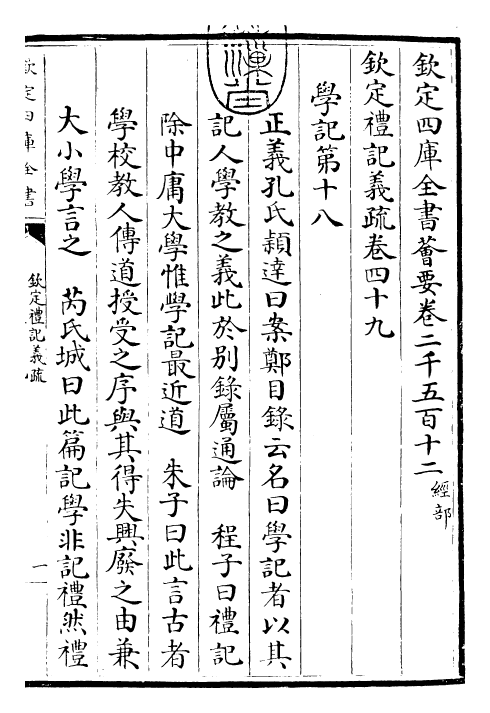 欽定四庫全書薈要卷二千五百十二 經部
欽定禮記義疏卷四十九
學記第十八
正義孔氏穎達曰案鄭目錄云名曰學記者以其
記人學教之義此於別錄屬通論 程子曰禮記
除中庸大學惟學記最近道 朱子曰此言古者
學校教人傳道授受之序與其得失興廢之由兼
大小學言之 芮氏城曰此篇記學非記禮然禮
欽定四庫全書
欽定禮記義疏
一